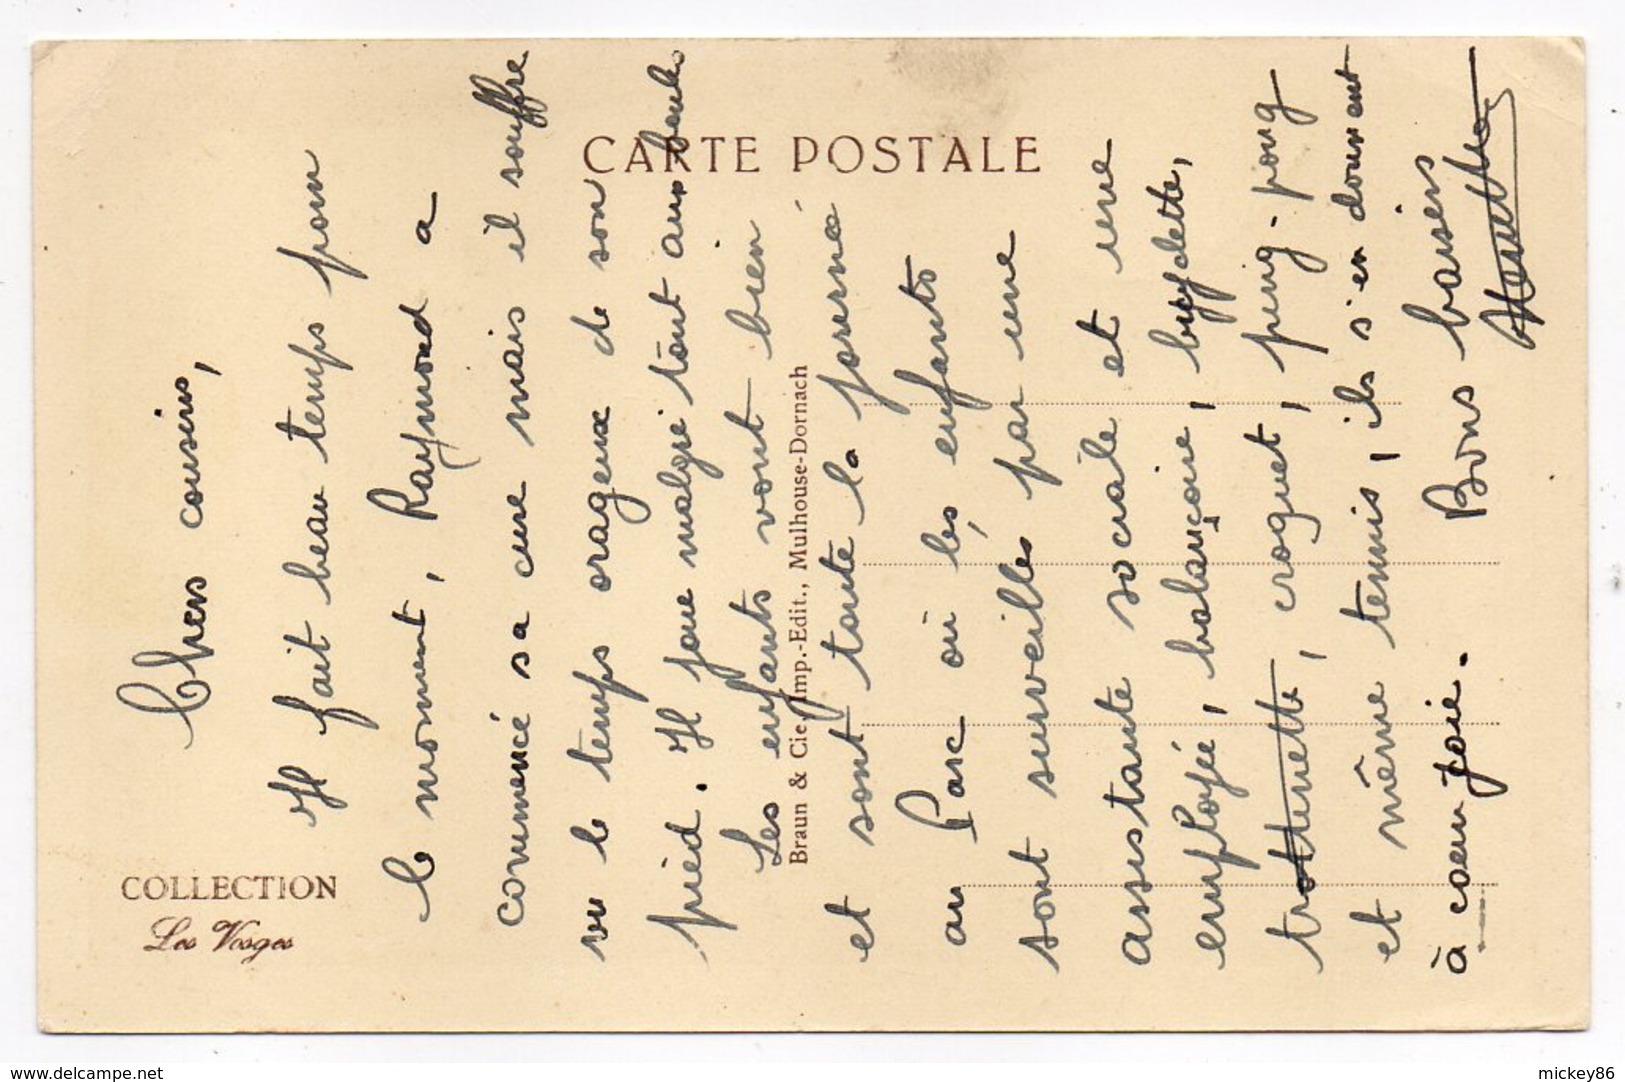 CARTE POSTALE
COLLECTION
Les Vosges
Braun & Cie, Imp.-Edit., Mulhouse-Dornach
Chers cousins,
Il fait beau temps pour
le moment, Raymond a
commencé sa cure mais il souffre
vu le temps orageux de son
pied. Il joue malgré tout aux boules
Les enfants vont bien
et sont toute la journée
au Parc où les enfants
sont surveillés par une
assistante sociale et une
employée, balançoire, bicyclette,
trottinette, croquet, ping-pong
et même tennis, ils s'en donnent
à coeur joie. Bons baisers
www.delcampe.net
mickey86